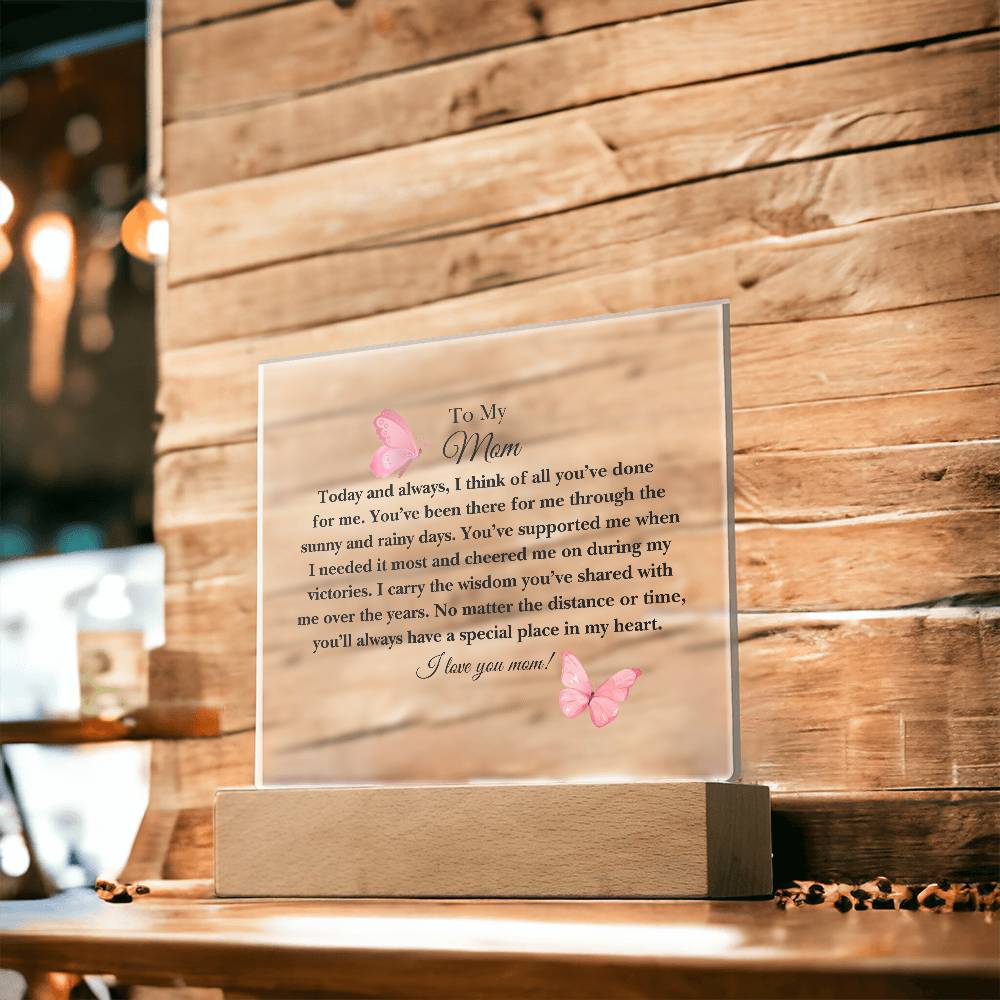 To My
Mom
Today and always, I think of all you've done
for me. You've been there for me through the
sunny and rainy days. You've supported me when
I needed it most and cheered me on during my
victories. I carry the wisdom you've shared with
me over the years. No matter the distance or time,
you'll always have a special place in my heart.
I love you mom!